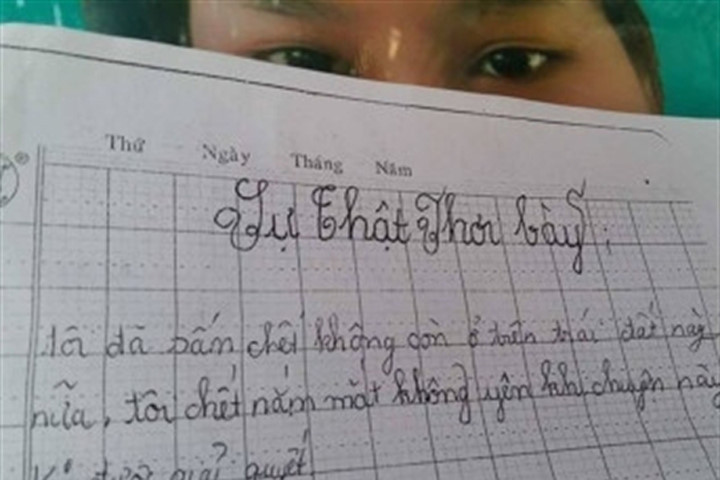 Thứ Ngày Tháng Năm
Sự thật Phơi bày:
tôi đã chết không còn ở trên trái đất này
nữa, tôi chết nắm mắt không yên khi chuyện này
giải quyết